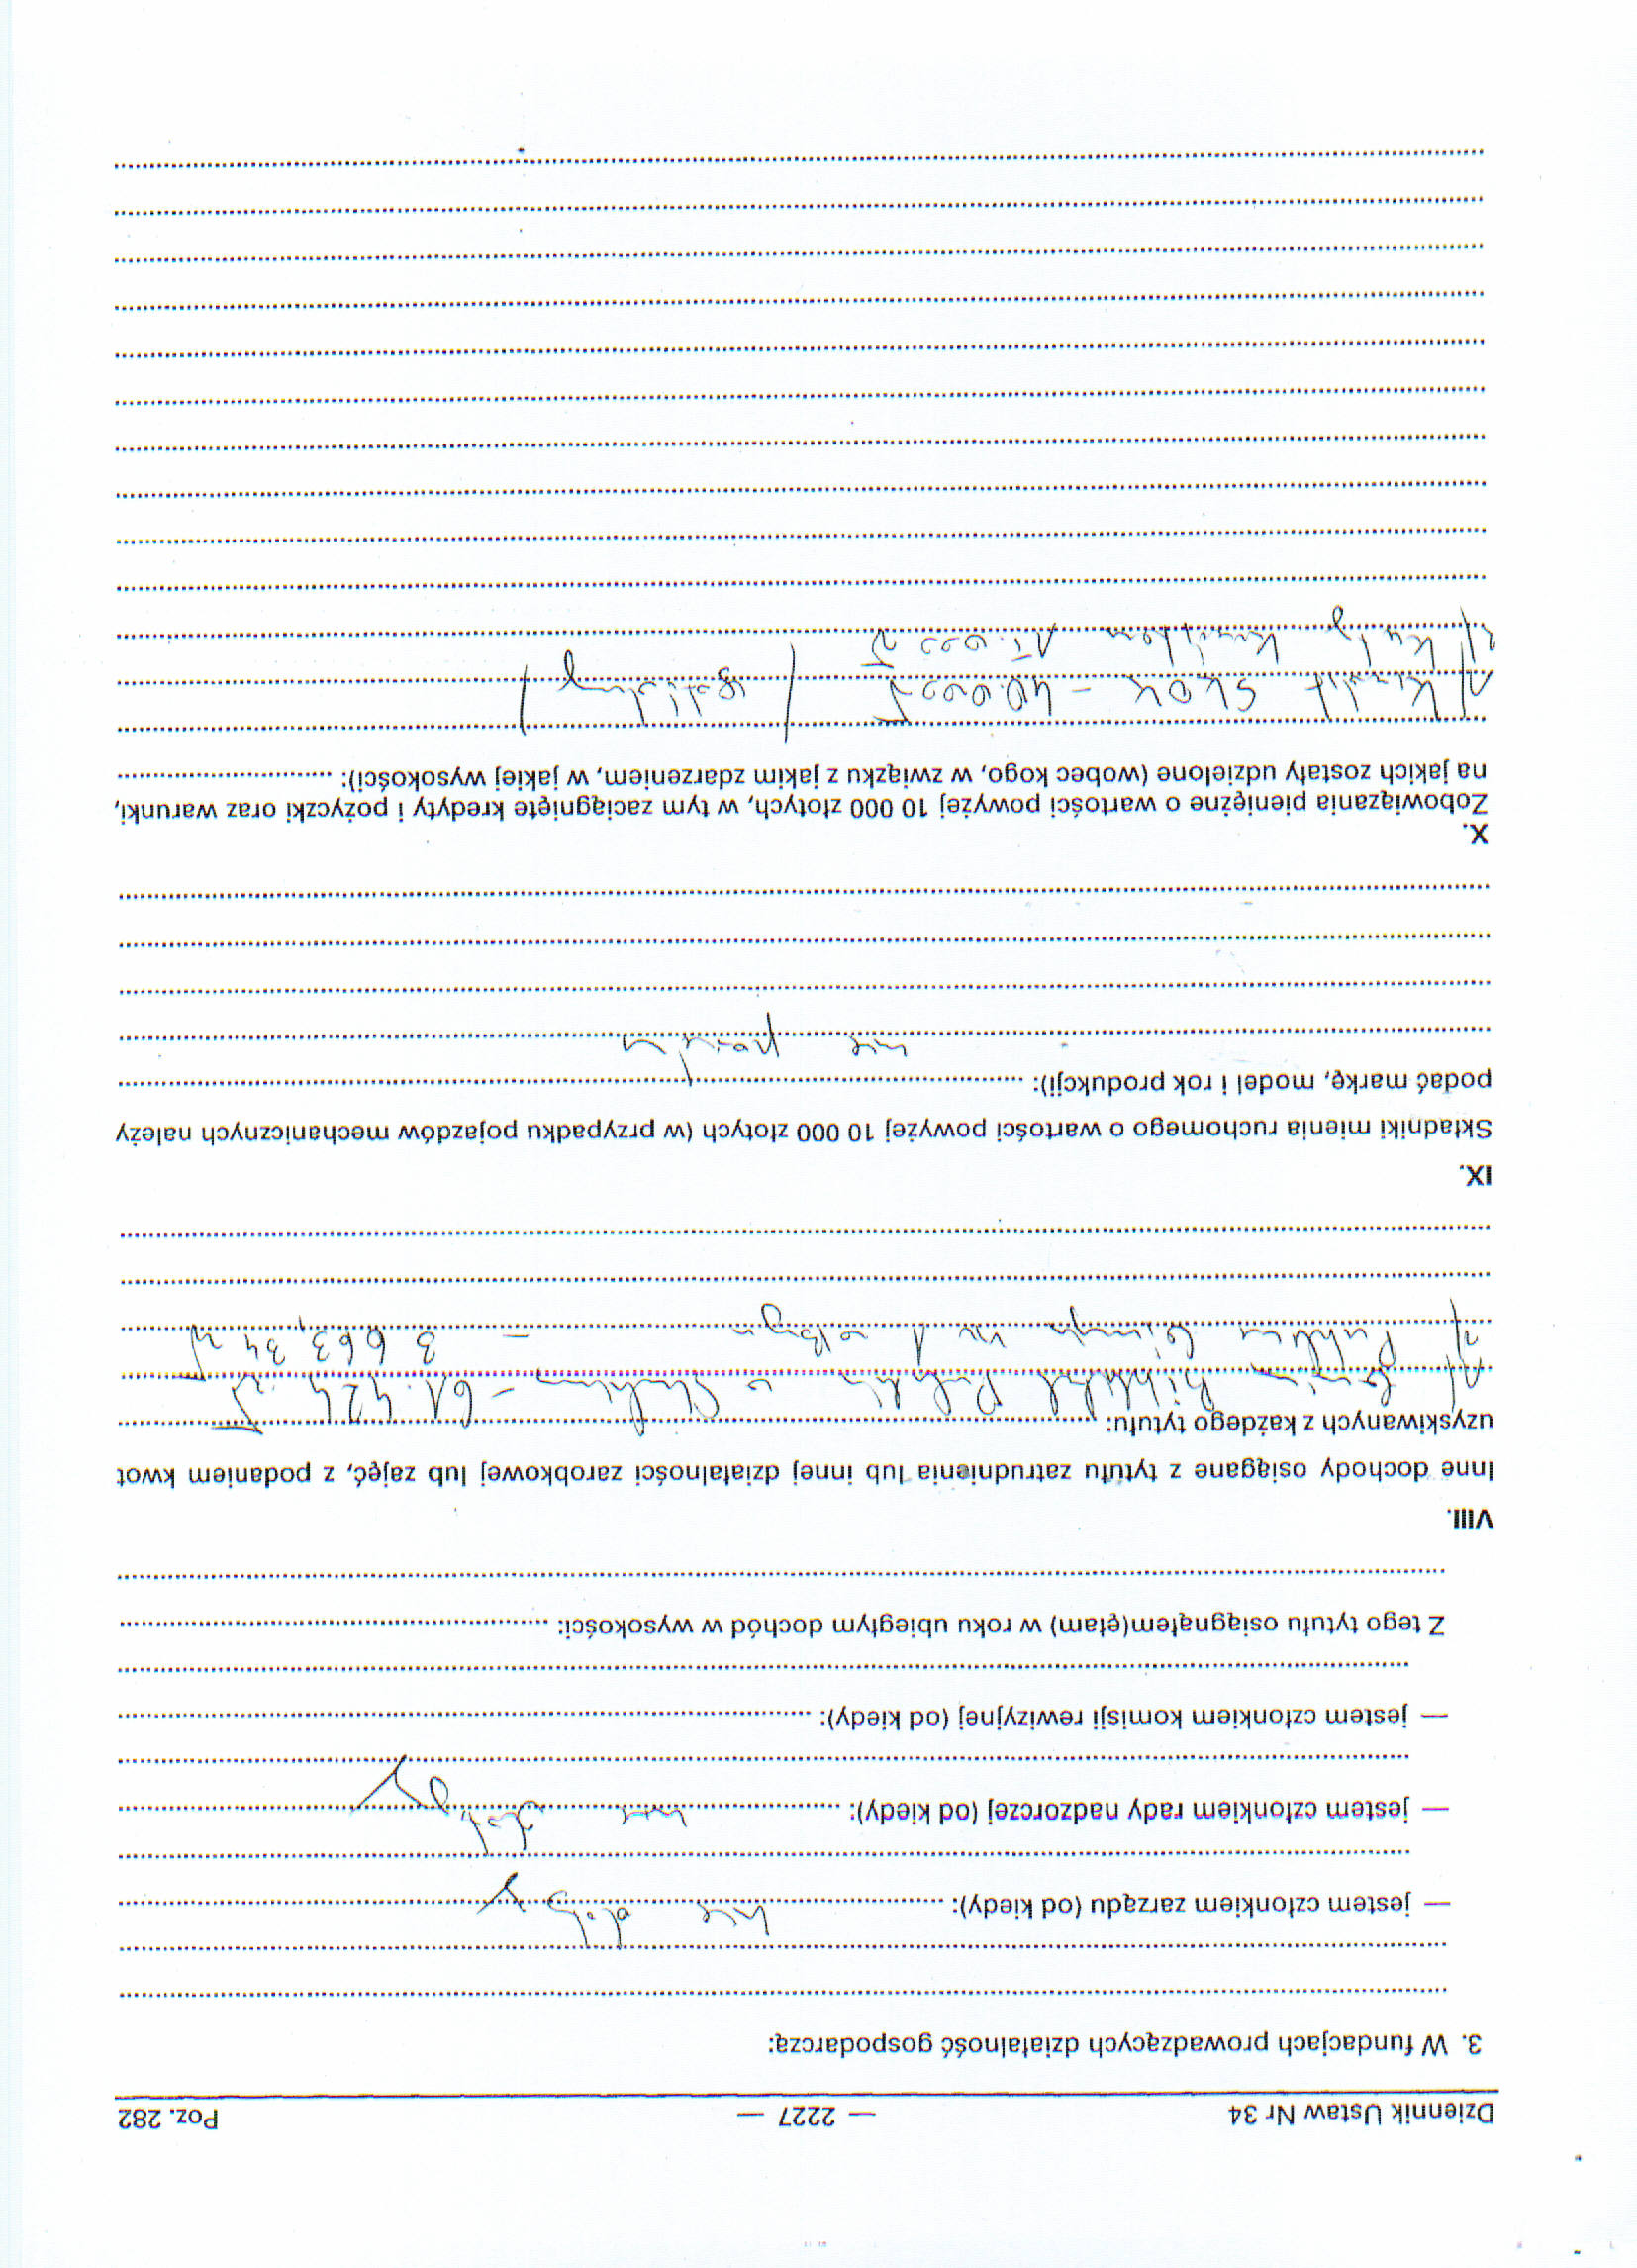 Dziennik Ustaw Nr 34 — 2227 — Poz. 282
3. W fundacjach prowadzących działalność gospodarczą:
— jestem członkiem zarządu (od kiedy): nie dotyczy
— jestem członkiem rady nadzorczej (od kiedy): nie dotyczy
— jestem członkiem komisji rewizyjnej (od kiedy):
Z tego tytułu osiągnąłem(ęłam) w roku ubiegłym dochód w wysokości:
VIII.
Inne dochody osiągane z tytułu zatrudnienia lub innej działalności zarobkowej lub zajęć, z podaniem kwot
uzyskiwanych z każdego tytułu:
1/ – 61.424 zł
2/ – 3 663,34 zł
IX.
Składniki mienia ruchomego o wartości powyżej 10 000 złotych (w przypadku pojazdów mechanicznych należy
podać markę, model i rok produkcji):
nie posiadam
X.
Zobowiązania pieniężne o wartości powyżej 10 000 złotych, w tym zaciągnięte kredyty i pożyczki oraz warunki,
na jakich zostały udzielone (wobec kogo, w związku z jakim zdarzeniem, w jakiej wysokości):
1/ kredyt SKOK – 40.000 zł
2/ 15.000 zł